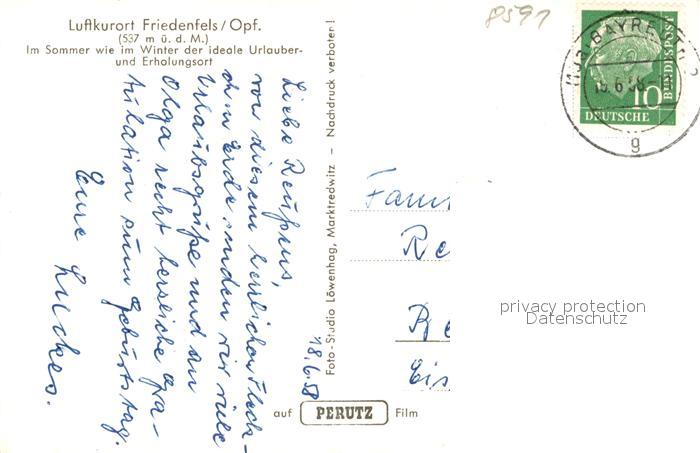 Luftkurort Friedenfels/Opf.
(537 m ü. d. M.)
Im Sommer wie im Winter der ideale Urlauber-
und Erholungsort
8591
Liebe
von diesem herrlichen Fleck-
chen Erde senden wir viele
Urlaubsgrüße und an
Olga recht herzliche Gra-
tulation zum Geburtstag.
Eure
18.6.58
Foto-Studio Löwenhag, Marktredwitz – Nachdruck verboten!
auf PERUTZ Film
BAYREUTH
6.58
g
10
DEUTSCHE
BUNDESPOST
Fam
Re
Be
Eis
privacy protection
Datenschutz